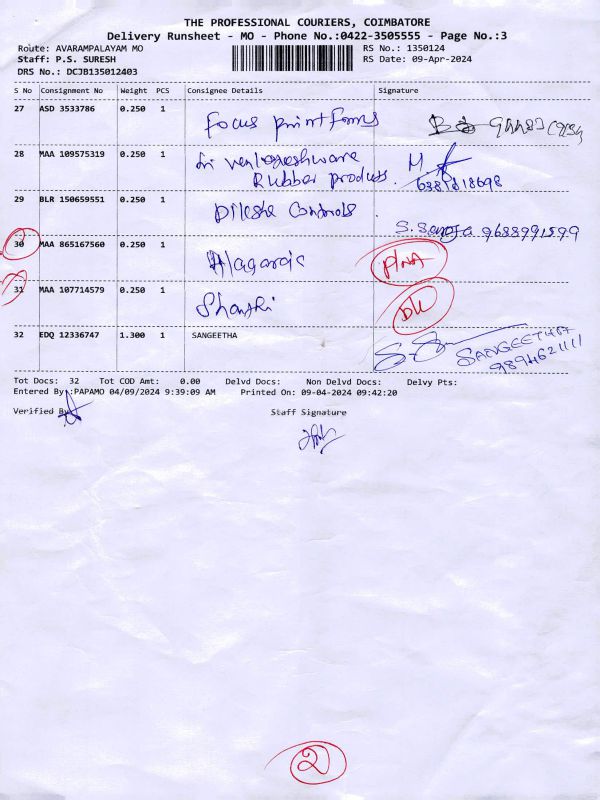 THE PROFESSIONAL COURIERS, COIMBATORE
Delivery Runsheet - MO - Phone No.:0422-3505555 - Page No.:3
Route: AVARAMPALAYAM MO RS No.: 1350124
Staff: P.S. SURESH RS Date: 09-Apr-2024
DRS No.: DCJB135012403
S No Consignment No Weight PCS Consignee Details Signature
27 ASD 3533786 0.250 1 Focus printforms
28 MAA 109575319 0.250 1 Sri venkateshware M
Rubber products. 6381818698
29 BLR 150659551 0.250 1 Dileshe Controls
S. Sangfa 9688991599
30 MAA 865167560 0.250 1 Alagaraja P/NA
31 MAA 107714579 0.250 1 Shanthi DL
32 EDQ 12336747 1.300 1 SANGEETHA SANGEETHA
9894621111
Tot Docs: 32 Tot COD Amt: 0.00 Delvd Docs: Non Delvd Docs: Delvy Pts:
Entered By :PAPAMO 04/09/2024 9:39:09 AM Printed On: 09-04-2024 09:42:20
Verified By Staff Signature
2